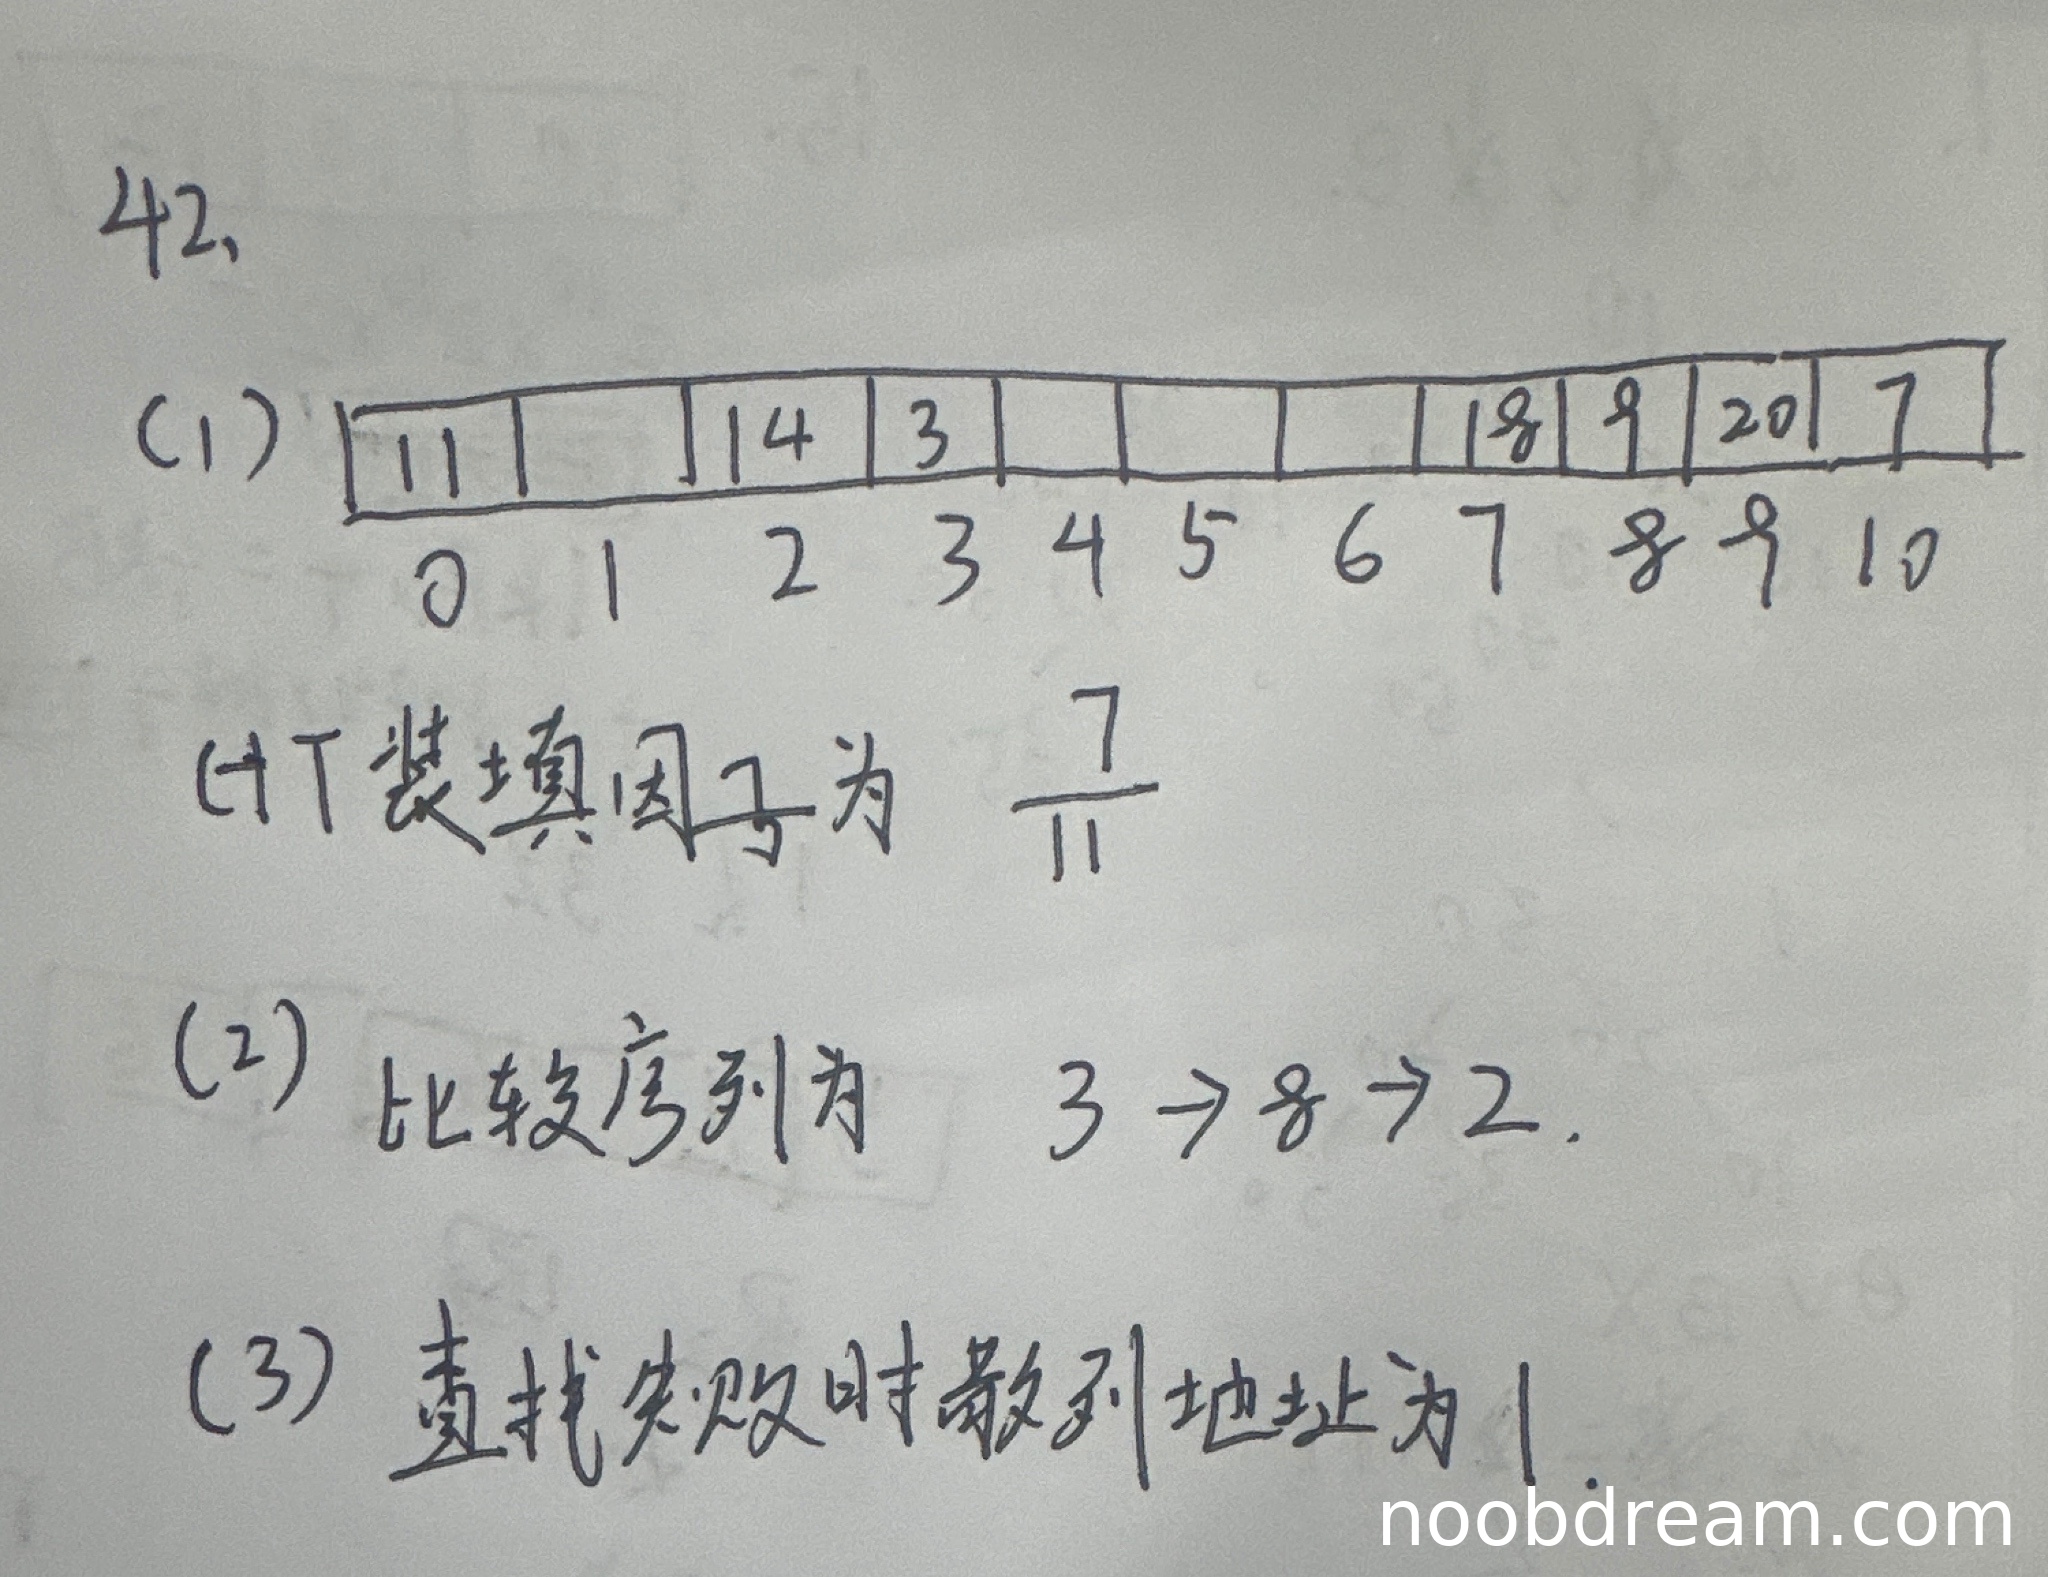 42、
(1) 11 14 3 18 9 20 7
0 1 2 3 4 5 6 7 8 9 10
HT装填因子为 7/11
(2) 比较序列为 3→8→2.
(3) 查找失败时散列地址为1.
noobdream.com